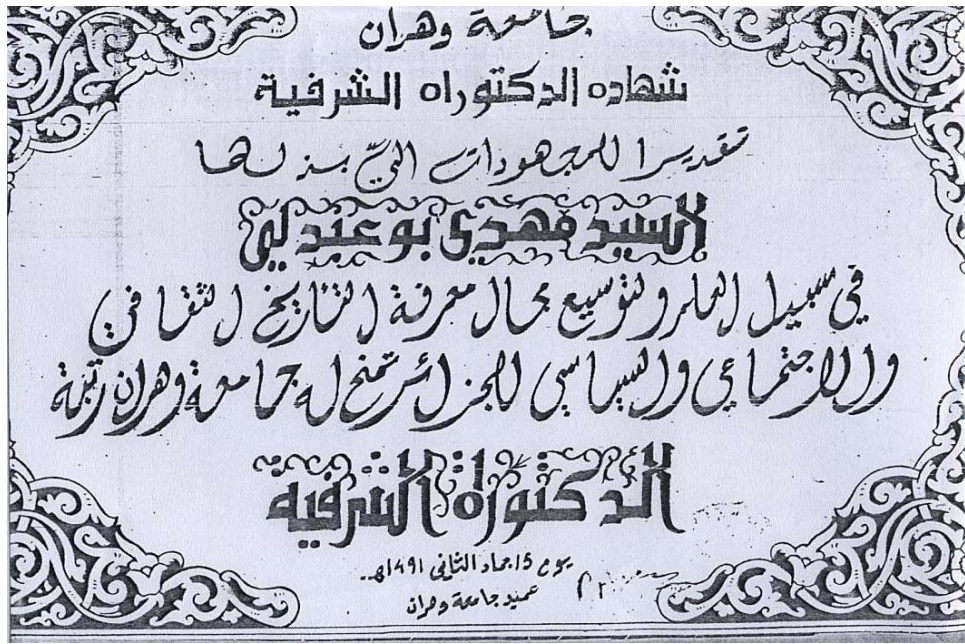 جامعة وهران
شهاده الدكتوراه الشرفية
تقديرا للمجهودات التي بذلها
السيد مهدي بوعبدلي
في سبيل العلم ولتوسيع مجال معرفة التاريخ الثقافي
والاجتماعي والسياسي للجزائر تمنح له جامعة وهران رتبة
الدكتوراه الشرفية
يوم 15 جماد الثاني 1491هـ
عميد جامعة وهران